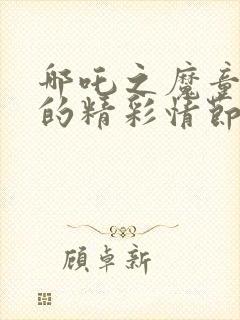 哪吒之魔童
的精彩情节
顾卓新